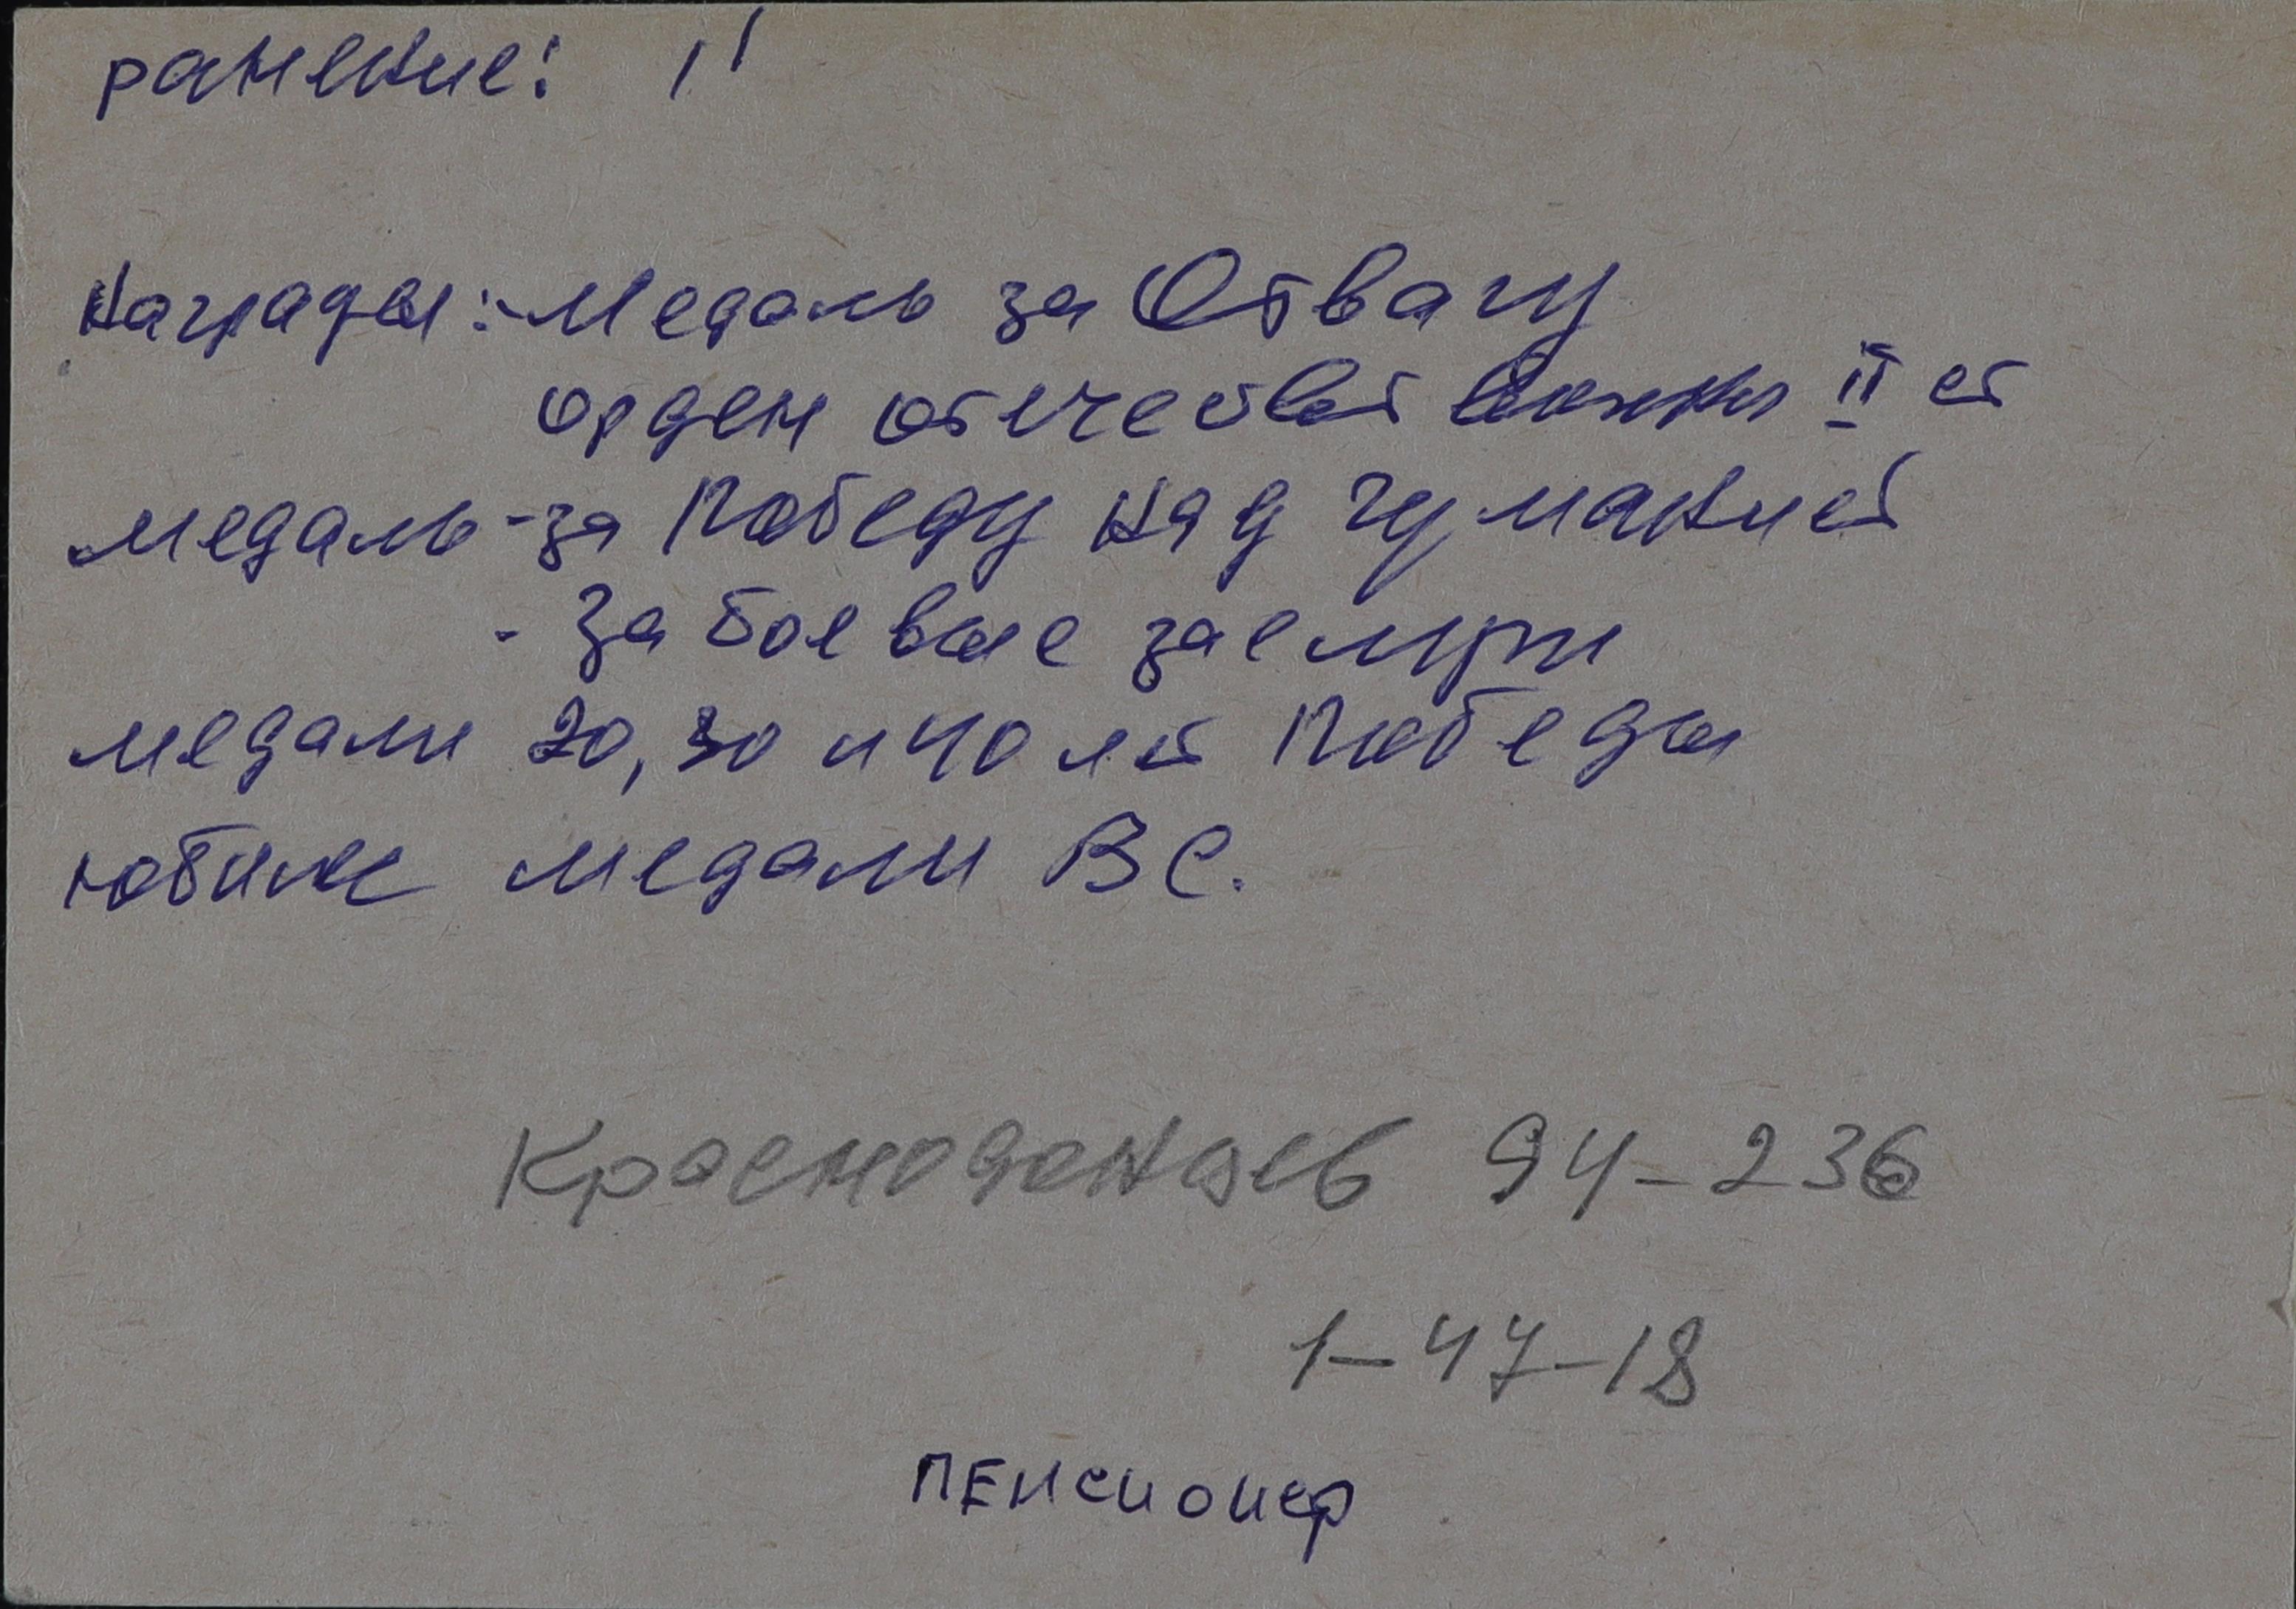 ранение: //
Награды: - Медаль за Отвагу
орден отечеств войны II ст
медаль - за Победу над Германией
- За боевые заслуги
медали 20, 30 и 40 лет Победы
юбил медали ВС.
Краснодонцев 94-236
1-47-18
ПЕНСИОНЕР